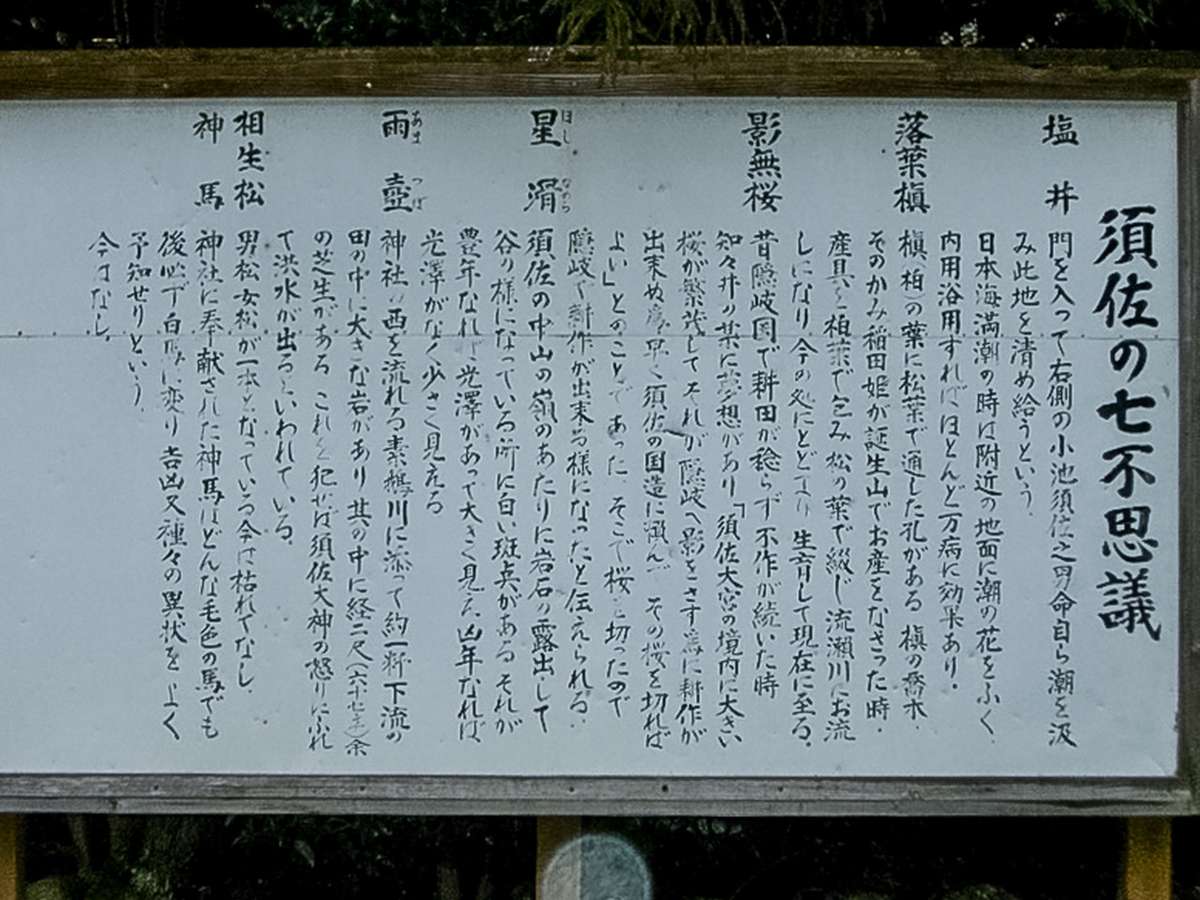 須佐の七不思議
塩井 門を入って右側の小池須佐之男命自ら潮を汲
み此地を清め給うという。
日本海満潮の時は附近の地面に潮の花をふく、
内用浴用すればほとんど万病に効果あり。
落葉槇 槇(柏)の葉に松葉で通した孔がある 槇の喬木、
そのかみ稲田姫が誕生山でお産をなさった時、
産具を柏葉で包み松の葉で綴じ流瀬川にお流
しになり、今の処にとどまり 生育して現在に至る。
影無桜 昔隠岐国で耕田が稔らず不作が続いた時
知々井の某に夢想があり「須佐大宮の境内に大きい
桜が繁茂してそれが隠岐へ影をさす為に耕作が
出来ぬ為早く須佐の国造に頼んで その桜を切れば
よい」とのことであった そこで桜を切ったので
隠岐で耕作が出来る様になったと伝えられる。
星滑 ほし なめら 須佐の中山の嶺のあたりに岩石の露出して
谷の様になっている所に白い斑点がある それが
豊年なれば光澤があって大きく見え 凶年なれば、
光澤がなく少さく見える
雨壺 あま つぼ 神社の西を流れる素鵝川に添って約一粁下流の
田の中に大きな岩があり 其の中に経二尺(六十七)余
の芝生がある これを犯せば須佐大神の怒りにふれ
て洪水が出るといわれている。
相生松 男松女松が一本となっている今は枯れてなし、
神馬 神社に奉献された神馬はどんな毛色の馬でも
後必ず白馬に変り吉凶又種々の異状をよく
予知せりという、
今はなし。